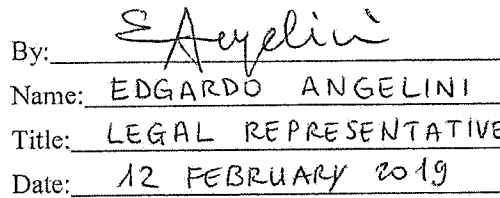 By: E Angelini
Name: EDGARDO ANGELINI
Title: LEGAL REPRESENTATIVE
Date: 12 FEBRUARY 2019